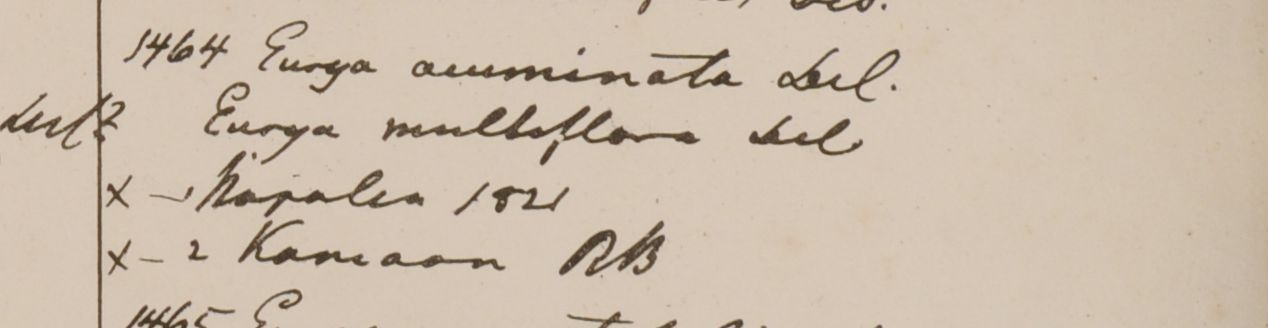 1464 Eurya acuminata Del.
Del? Eurya multiflora Del
x - 1 Napalia 1821
x - 2 Kamaon RB
1465